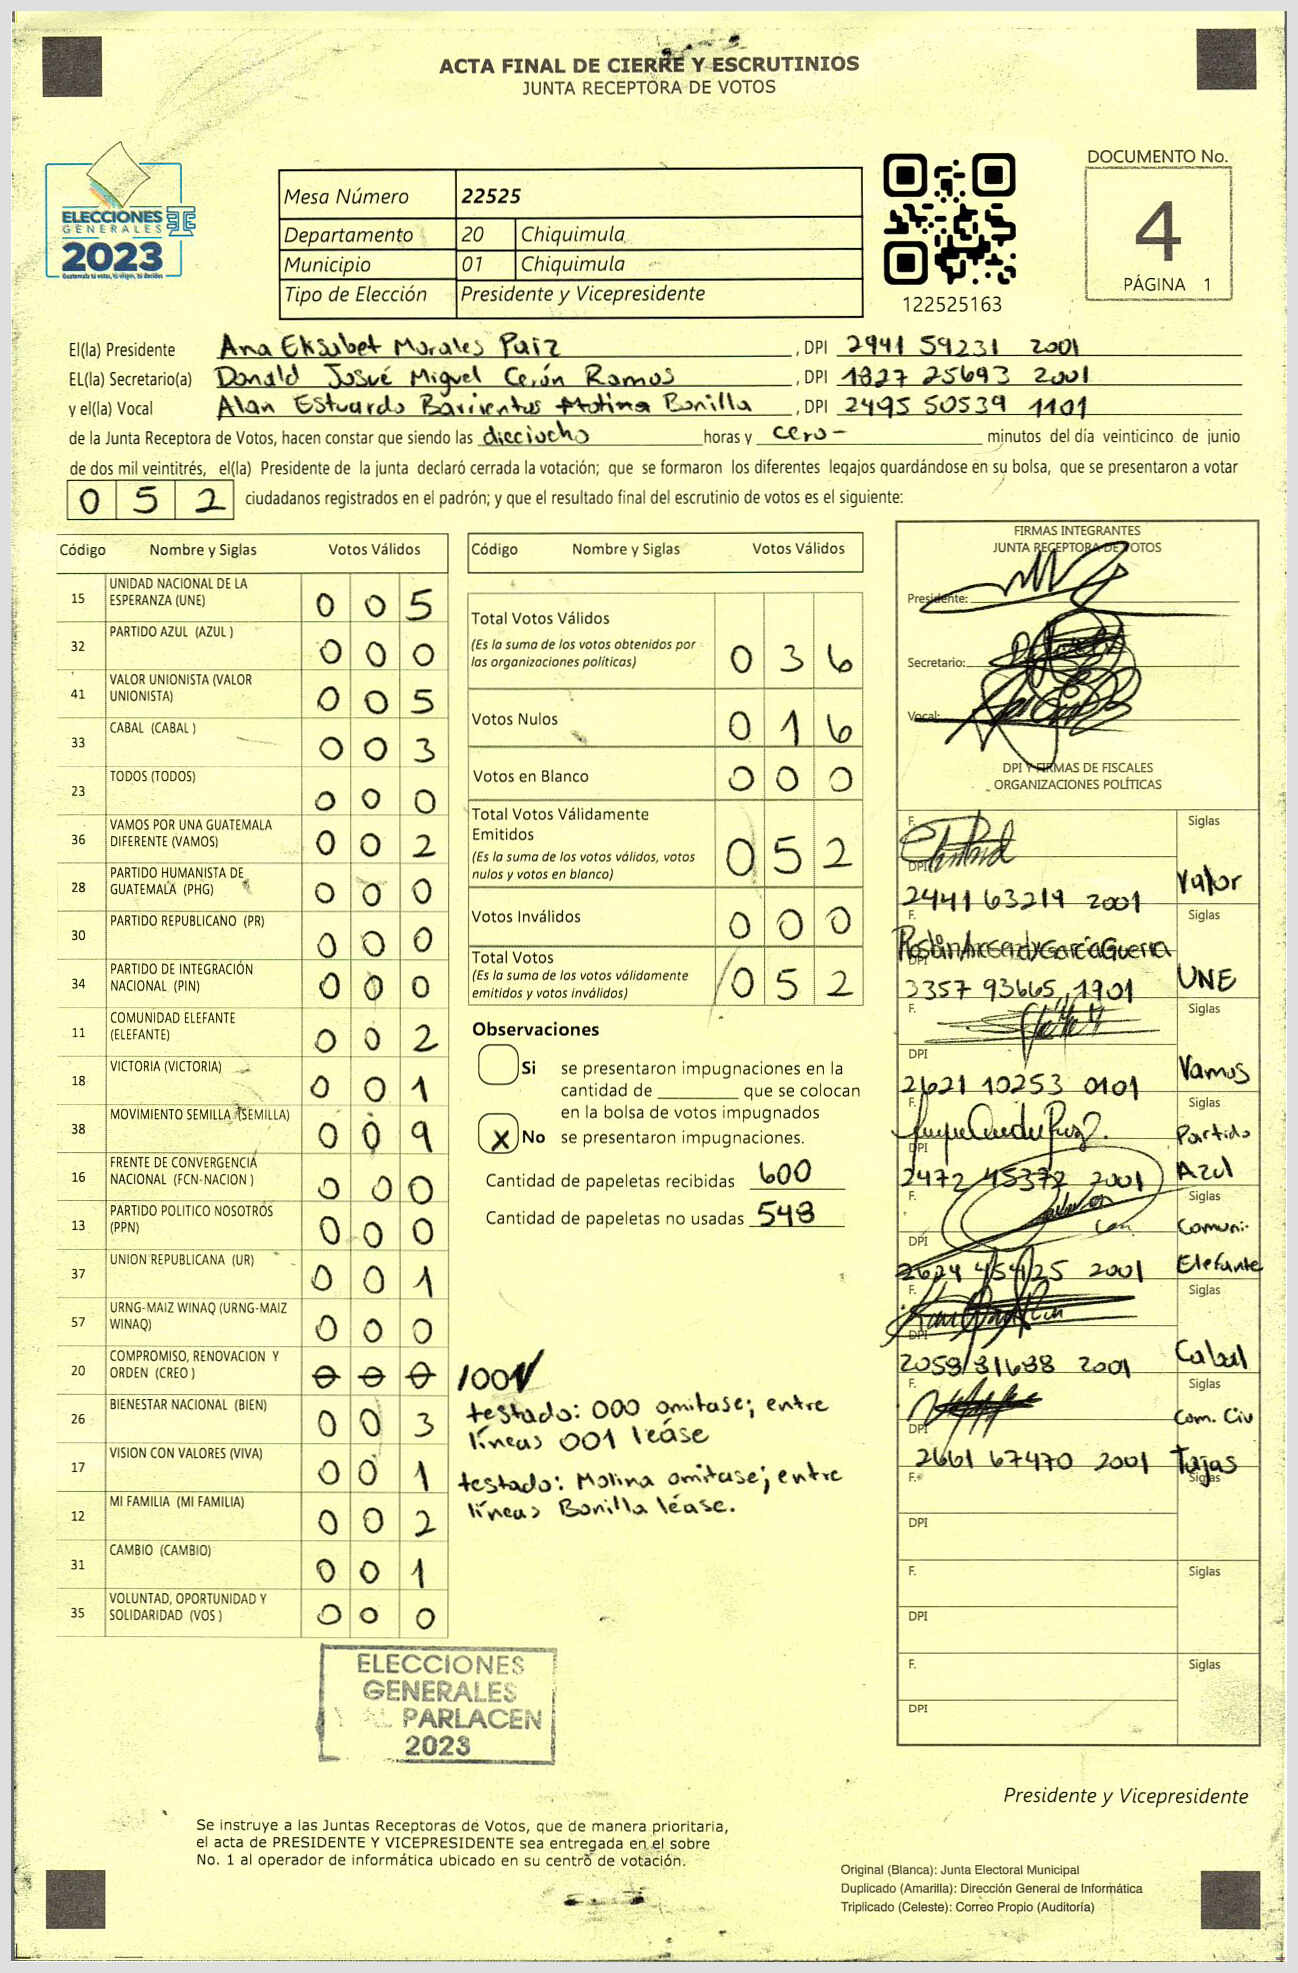 ACTA FINAL DE CIERRE Y ESCRUTINIOS
JUNTA RECEPTORA DE VOTOS
ELECCIONES
GENERALES
2023
Mesa Número 22525
Departamento 20 Chiquimula
Municipio 01 Chiquimula
Tipo de Elección Presidente y Vicepresidente
122525163
DOCUMENTO No.
4
PÁGINA 1
El(la) Presidente Ana Elisabet Morales Paiz, DPI 2941 59231 2001
EL(la) Secretario(a) Donald Josué Miguel Cerón Ramos, DPI 1827 25693 2001
y el(la) Vocal Alan Estuardo Barrientos Molina Bonilla, DPI 2495 50539 1101
de la Junta Receptora de Votos, hacen constar que siendo las dieciocho horas y cero- minutos del día veinticinco de junio
de dos mil veintitrés, el(la) Presidente de la junta declaró cerrada la votación; que se formaron los diferentes legajos guardándose en su bolsa, que se presentaron a votar
0 5 2 ciudadanos registrados en el padrón; y que el resultado final del escrutinio de votos es el siguiente:
Código Nombre y Siglas Votos Válidos
15 UNIDAD NACIONAL DE LA ESPERANZA (UNE) 0 0 5
32 PARTIDO AZUL (AZUL ) 0 0 0
41 VALOR UNIONISTA (VALOR UNIONISTA) 0 0 5
33 CABAL (CABAL ) 0 0 3
23 TODOS (TODOS) 0 0 0
36 VAMOS POR UNA GUATEMALA DIFERENTE (VAMOS) 0 0 2
28 PARTIDO HUMANISTA DE GUATEMALA (PHG) 0 0 0
30 PARTIDO REPUBLICANO (PR) 0 0 0
34 PARTIDO DE INTEGRACIÓN NACIONAL (PIN) 0 0 0
11 COMUNIDAD ELEFANTE (ELEFANTE) 0 0 2
18 VICTORIA (VICTORIA) 0 0 1
38 MOVIMIENTO SEMILLA (SEMILLA) 0 0 9
16 FRENTE DE CONVERGENCIA NACIONAL (FCN-NACION ) 0 0 0
13 PARTIDO POLITICO NOSOTROS (PPN) 0 0 0
37 UNION REPUBLICANA (UR) 0 0 1
57 URNG-MAIZ WINAQ (URNG-MAIZ WINAQ) 0 0 0
20 COMPROMISO, RENOVACION Y ORDEN (CREO ) 0 0 0 /001/
26 BIENESTAR NACIONAL (BIEN) 0 0 3
17 VISION CON VALORES (VIVA) 0 0 1
12 MI FAMILIA (MI FAMILIA) 0 0 2
31 CAMBIO (CAMBIO) 0 0 1
35 VOLUNTAD, OPORTUNIDAD Y SOLIDARIDAD (VOS ) 0 0 0
Código Nombre y Siglas Votos Válidos
Total Votos Válidos 0 3 6
(Es la suma de los votos obtenidos por
las organizaciones políticas)
Votos Nulos 0 1 6
Votos en Blanco 0 0 0
Total Votos Válidamente
Emitidos 0 5 2
(Es la suma de los votos válidos, votos
nulos y votos en blanco)
Votos Inválidos 0 0 0
Total Votos 0 5 2
(Es la suma de los votos válidamente
emitidos y votos inválidos)
Observaciones
Si se presentaron impugnaciones en la
cantidad de ________ que se colocan
en la bolsa de votos impugnados
X No se presentaron impugnaciones.
Cantidad de papeletas recibidas 600
Cantidad de papeletas no usadas 548
testado: 000 omitase; entre
líneas 001 léase
testado: Molina omitase; entre
líneas Bonilla léase.
FIRMAS INTEGRANTES
JUNTA RECEPTORA DE VOTOS
Presidente:
Secretario:
Vocal:
DPI Y FIRMAS DE FISCALES
ORGANIZACIONES POLÍTICAS
F. Siglas
DPI Valor
2441 63219 2001
F. Siglas
DPI UNE
3357 93665 1901
F. Siglas
DPI Vamos
2621 10253 0101
F. Siglas
DPI Partido
2472 45372 2001 Azul
F. Siglas
DPI Comuni-
2624 45425 2001 Elefante
F. Siglas
DPI Cabal
2058 31688 2001
F. Siglas
DPI Com. Civ
2661 67470 2001 Tujas
F. Siglas
DPI
F. Siglas
DPI
F. Siglas
DPI
ELECCIONES
GENERALES
Y AL PARLACEN
2023
Presidente y Vicepresidente
Se instruye a las Juntas Receptoras de Votos, que de manera prioritaria,
el acta de PRESIDENTE Y VICEPRESIDENTE sea entregada en el sobre
No. 1 al operador de informática ubicado en su centro de votación.
Original (Blanca): Junta Electoral Municipal
Duplicado (Amarilla): Dirección General de Informática
Triplicado (Celeste): Correo Propio (Auditoría)